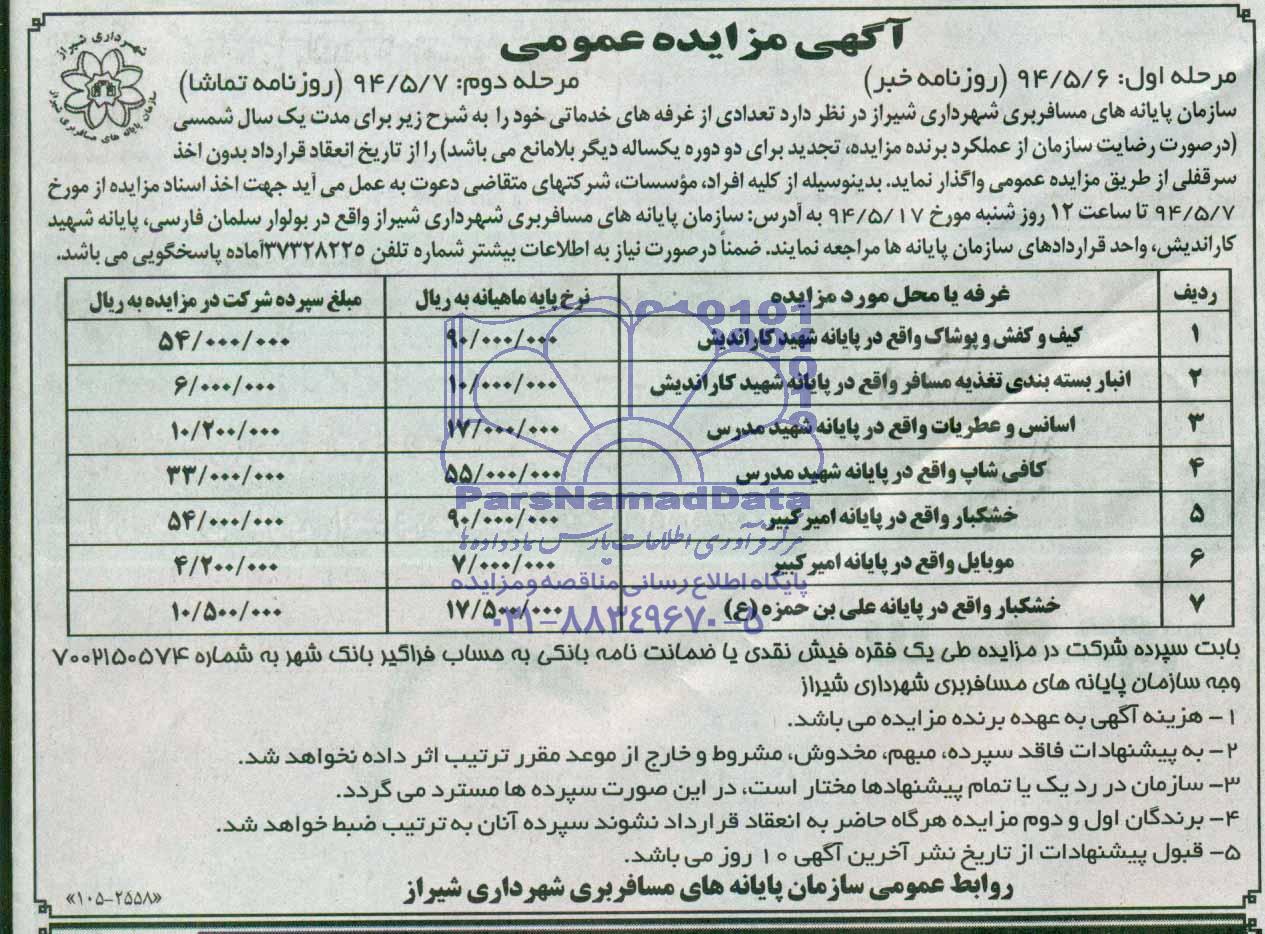 آگهی مزایده عمومی
شهرداری شیراز
سازمان پایانه های مسافربری شیراز
مرحله اول: ۹۴/۵/۶ (روزنامه خبر) مرحله دوم: ۹۴/۵/۷ (روزنامه تماشا)
سازمان پایانه های مسافربری شهرداری شیراز در نظر دارد تعدادی از غرفه های خدماتی خود را به شرح زیر برای مدت یک سال شمسی
(درصورت رضایت سازمان از عملکرد برنده مزایده، تجدید برای دو دوره یکساله دیگر بلامانع می باشد) را از تاریخ انعقاد قرارداد بدون اخذ
سرقفلی از طریق مزایده عمومی واگذار نماید. بدینوسیله از کلیه افراد، مؤسسات، شرکتهای متقاضی دعوت به عمل می آید جهت اخذ اسناد مزایده از مورخ
۹۴/۵/۷ تا ساعت ۱۲ روز شنبه مورخ ۹۴/۵/۱۷ به آدرس: سازمان پایانه های مسافربری شهرداری شیراز واقع در بولوار سلمان فارسی، پایانه شهید
کاراندیش، واحد قراردادهای سازمان پایانه ها مراجعه نمایند. ضمناً درصورت نیاز به اطلاعات بیشتر شماره تلفن ۳۷۳۲۸۲۲۵آماده پاسخگویی می باشد.
ردیف غرفه یا محل مورد مزایده نرخ پایه ماهیانه به ریال مبلغ سپرده شرکت در مزایده به ریال
۱ کیف و کفش و پوشاک واقع در پایانه شهید کاراندیش ۹۰/۰۰۰/۰۰۰ ۵۴/۰۰۰/۰۰۰
۲ انبار بسته بندی تغذیه مسافر واقع در پایانه شهید کاراندیش ۱۰/۰۰۰/۰۰۰ ۶/۰۰۰/۰۰۰
۳ اسانس و عطریات واقع در پایانه شهید مدرس ۱۷/۰۰۰/۰۰۰ ۱۰/۲۰۰/۰۰۰
۴ کافی شاپ واقع در پایانه شهید مدرس ۵۵/۰۰۰/۰۰۰ ۳۳/۰۰۰/۰۰۰
ParsNamadData
۵ خشکبار واقع در پایانه امیرکبیر ۹۰/۰۰۰/۰۰۰ ۵۴/۰۰۰/۰۰۰
مرکز فرآوری اطلاعات پارس نماد داده ها
۶ موبایل واقع در پایانه امیرکبیر ۷/۰۰۰/۰۰۰ ۴/۲۰۰/۰۰۰
پایگاه اطلاع رسانی مناقصه و مزایده
۷ خشکبار واقع در پایانه علی بن حمزه (ع) ۱۷/۵۰۰/۰۰۰ ۱۰/۵۰۰/۰۰۰
۰۲۱-۸۸۳۴۹۶۷۰-۵
بابت سپرده شرکت در مزایده طی یک فقره فیش نقدی یا ضمانت نامه بانکی به حساب فراگیر بانک شهر به شماره ۷۰۰۲۱۵۰۵۷۴
وجه سازمان پایانه های مسافربری شهرداری شیراز
۱- هزینه آگهی به عهده برنده مزایده می باشد.
۲- به پیشنهادات فاقد سپرده، مبهم، مخدوش، مشروط و خارج از موعد مقرر ترتیب اثر داده نخواهد شد.
۳- سازمان در رد یک یا تمام پیشنهادها مختار است، در این صورت سپرده ها مسترد می گردد.
۴- برندگان اول و دوم مزایده هرگاه حاضر به انعقاد قرارداد نشوند سپرده آنان به ترتیب ضبط خواهد شد.
۵- قبول پیشنهادات از تاریخ نشر آخرین آگهی ۱۰ روز می باشد.
روابط عمومی سازمان پایانه های مسافربری شهرداری شیراز
«۱۰۵-۲۵۵۸»